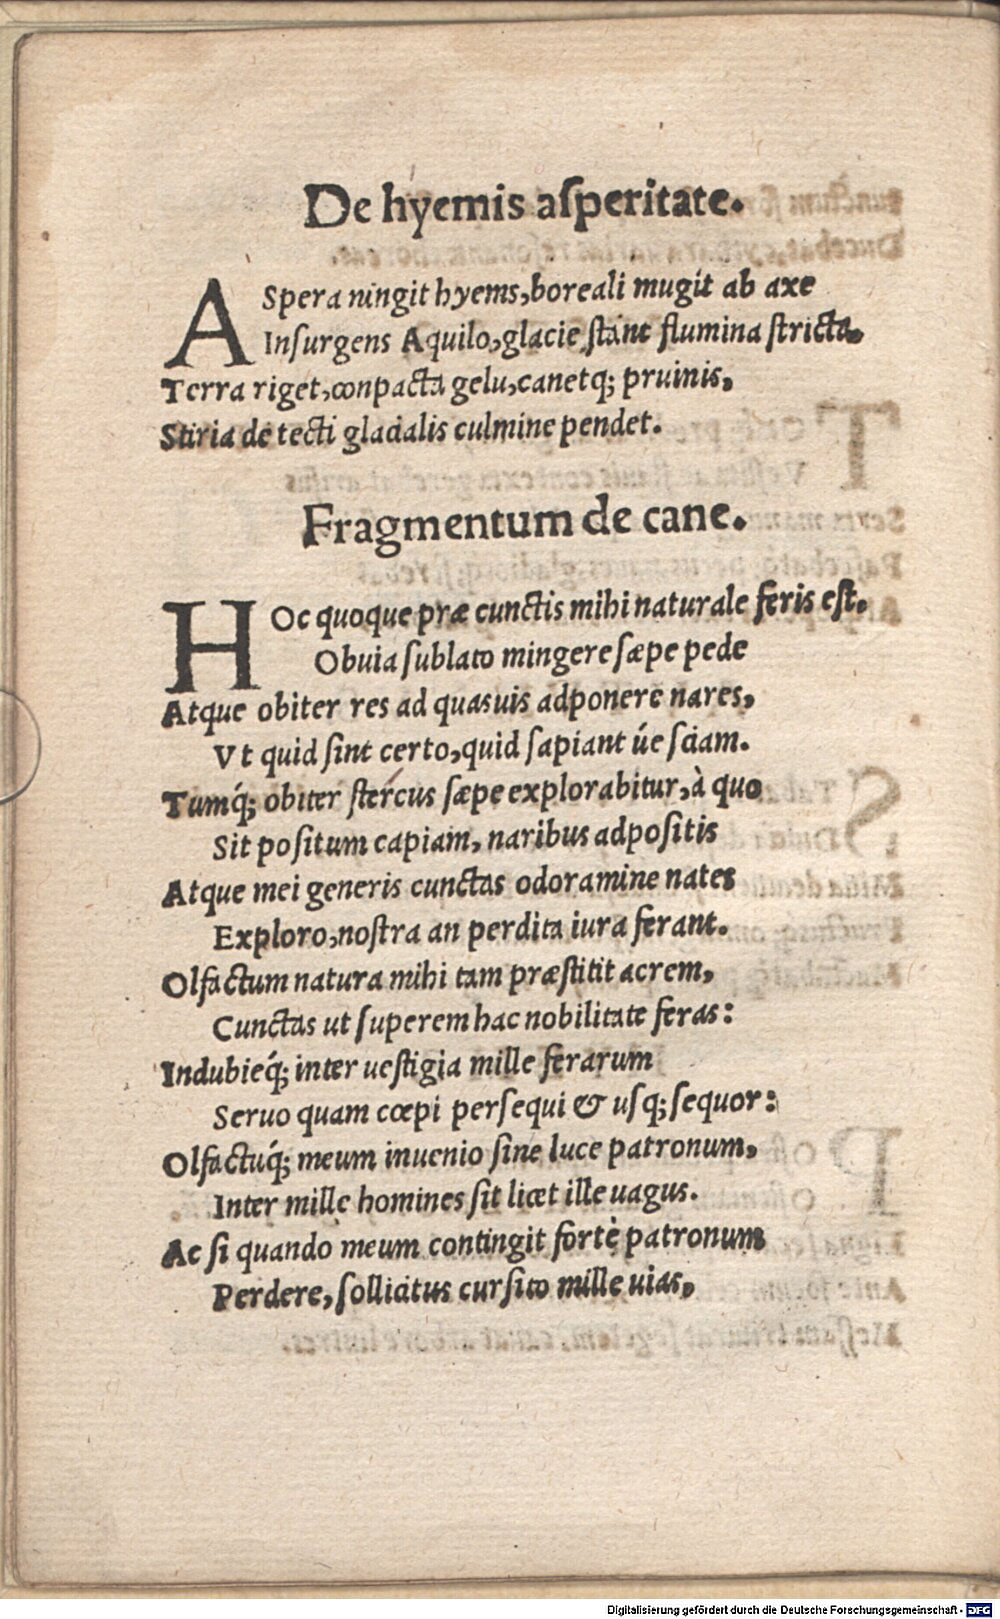 De hyemis aſperitate.
ASpera ningit hyems, boreali mugit ab axe
Inſurgens Aquilo, glacie ſtant flumina ſtricta.
Terra riget, conpacta gelu, canetq; pruinis,
Stiria de tecti glacialis culmine pendet.
Fragmentum de cane.
HOc quoque præ cunctis mihi naturale feris eſt.
Obuia ſublato mingere ſæpe pede
Atque obiter res ad quasuis adponere nares,
Vt quid ſint certo, quid ſapiant úe ſciam.
Tumq́; obiter ſtercus ſæpe explorabitur, à quo
Sit poſitum capiam, naribus adpoſitis
Atque mei generis cunctas odoramine nates
Exploro, noſtra an perdita iura ferant.
Olfactum natura mihi tam præſtitit acrem,
Cunctas ut ſuperem hac nobilitate feras:
Indubieq́; inter ueſtigia mille ferarum
Seruo quam cœpi perſequi & uſq; ſequor:
Olfactúq́; meum inuenio ſine luce patronum,
Inter mille homines ſit licet ille uagus.
Ac ſi quando meum contingit fortè patronum
Perdere, ſollicitus curſito mille uias,
Digitalisierung gefördert durch die Deutsche Forschungsgemeinschaft - DFG